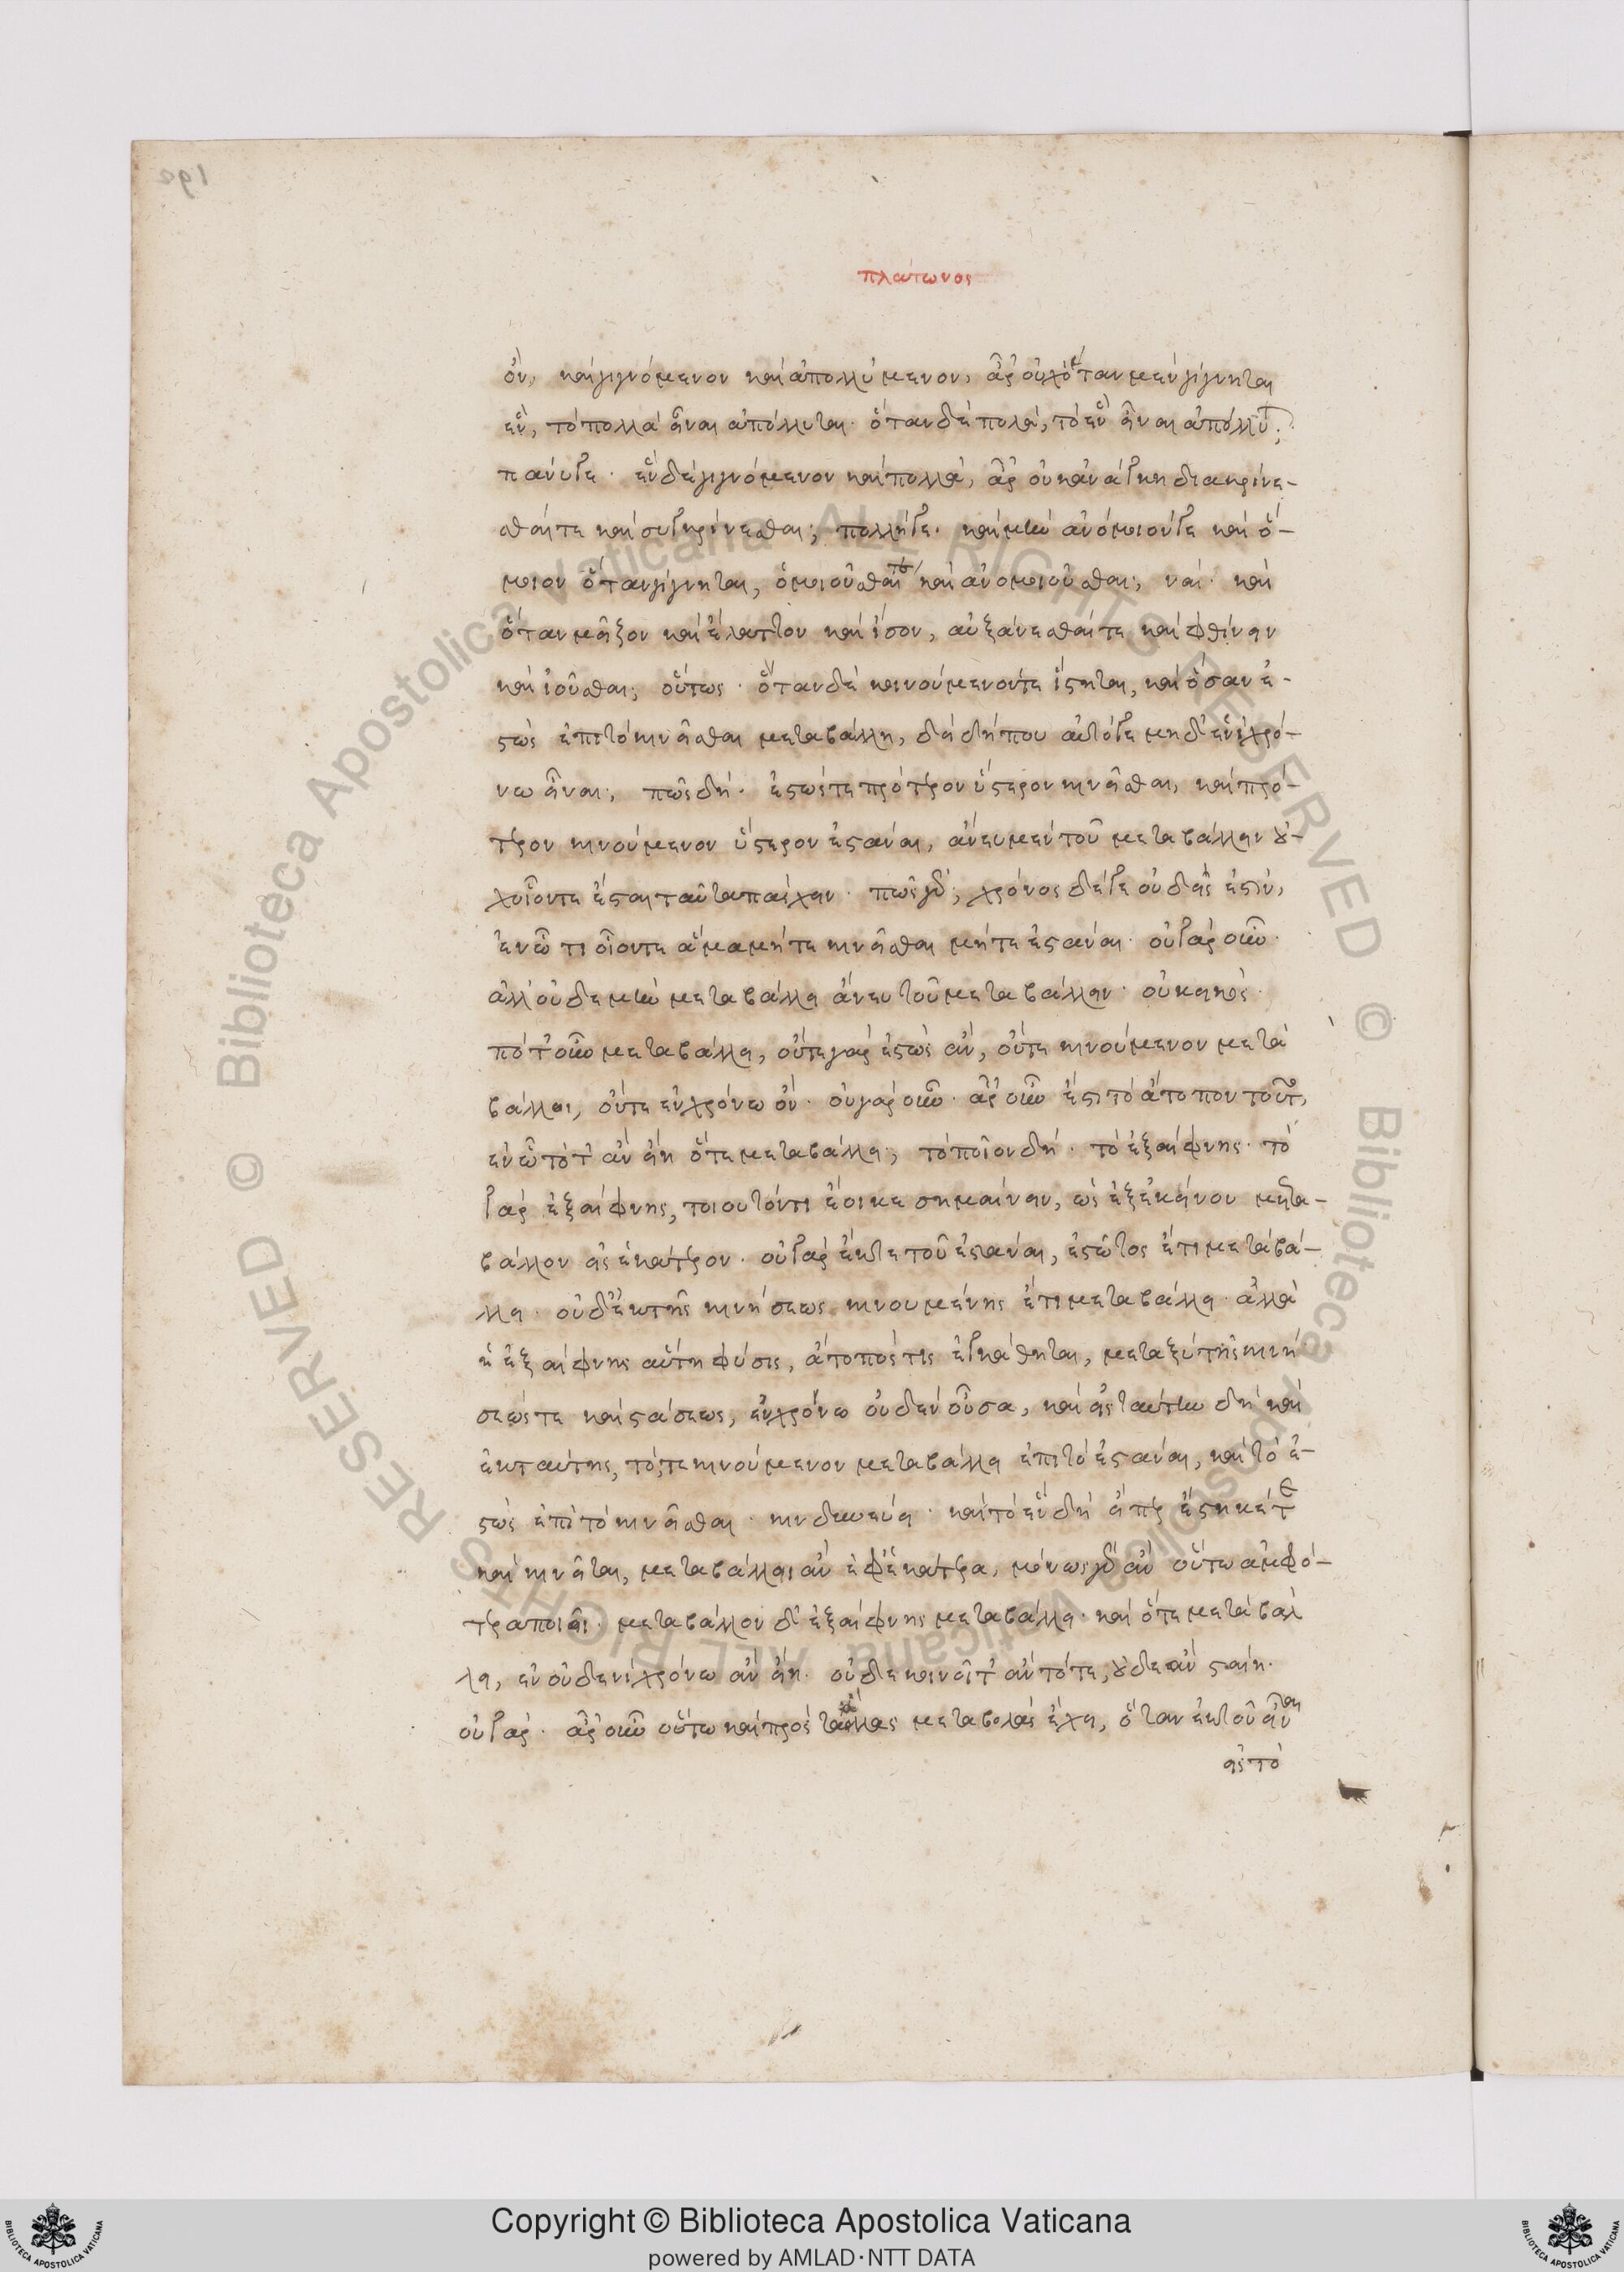 πλάτωνος
ὄν, καὶ γιγνόμενον καὶ ἀπολλύμενον, ἆρ' οὐχ ὅταν μὲν γίγνηται
ἓν, τὸ πολλὰ εἶναι ἀπόλλυται· ὅταν δὲ πολά, τὸ ἓν εἶναι ἀπόλλυται;
πάνυ γε· ἓν δὲ γιγνόμενον καὶ πολλὰ, ἆρ' οὐκ ἀνάγκη διακρίνε-
σθαί τε καὶ συγκρίνεσθαι; πολλή γε· καὶ μὴν ἀνόμοιόν γε καὶ ὅ-
μοιον ὅταν γίγνηται, ὁμοιοῦσθαί τε καὶ ἀνομοιοῦσθαι; ναί· καὶ
ὅταν μεῖζον καὶ ἔλαττον καὶ ἴσον, αὐξάνεσθαί τε καὶ φθίνειν
καὶ ἰσοῦσθαι; οὕτως· ὅταν δὲ κινούμενόν τε ἵστηται, καὶ ὅταν ἑ-
στὼς ἐπὶ τὸ κινεῖσθαι μεταβάλλη, δεῖ δήπου αὐτό γε μηδ' ἐν ἑνὶ χρό-
νω εἶναι; πῶς δή· ἑστώς τε πρότερον ὕστερον κινεῖσθαι, καὶ πρό-
τερον κινούμενον ὕστερον ἑστάναι, ἄνευ μὲν τοῦ μεταβάλλειν οὐ-
χ οἷόν τε ἔσται ταῦτα πάσχειν· πῶς γάρ; χρόνος δέ γε οὐδείς ἐστιν,
ἐν ὧ τι οἷόν τε ἅμα μήτε κινεῖσθαι μήτε ἑστάναι· οὐ γὰρ οὖν·
ἀλλ' οὐδὲ μὴν μεταβάλλει ἄνευ τοῦ μεταβάλλειν· οὐκ εἰκός·
πότ' οὖν μεταβάλλει, οὔτε γὰρ ἑστὼς ἂν, οὔτε κινούμενον μετα
βάλλοι, οὔτε ἐν χρόνω ὄν· οὐ γὰρ οὖν· ἆρ' οὖν ἔστι τὸ ἄτοπον τοῦτο,
ἐν ὧ τότ' ἂν εἴη ὅτε μεταβάλλει; τὸ ποῖον δή· τὸ ἐξαίφνης· τὸ
γὰρ ἐξαίφνης, τοιουτόντι ἔοικε σημαίνειν, ὡς ἐξ ἐκείνου μετα-
βάλλον εἰς ἑκάτερον· οὐ γὰρ ἔκ γε τοῦ ἑστάναι, ἑστῶτος ἔτι μεταβά-
λλει· οὐδ' ἐκ τῆς κινήσεως κινουμένης ἔτι μεταβάλλει· ἀλλὰ
ἡ ἐξαίφνης αὕτη φύσις, ἄτοπός τις ἐγκάθηται, μεταξὺ τῆς κινή
σεώς τε καὶ στάσεως, ἐν χρόνω οὐδενὶ οὖσα, καὶ εἰς ταύτην δὴ καὶ
ἐκ ταύτης, τό, τε κινούμενον μεταβάλλει ἐπὶ τὸ ἑστάναι, καὶ τὸ ἑ-
στὼς ἐπὶ τὸ κινεῖσθαι· κινδυνεύει· καὶ τὸ ἓν δὴ εἴπερ ἕστηκέ τε
καὶ κινεῖται, μεταβάλλοι ἂν ἐφ' ἑκάτερα, μόνως γὰρ ἂν οὕτω ἀμφό-
τερα ποιεῖ· μεταβάλλον δ' ἐξαίφνης μεταβάλλει· καὶ ὅτε μεταβάλ
λει, ἐν οὐδενὶ χρόνω ἂν εἴη· οὐδὲ κινοῖτ' ἂν τότε, οὐδὲ ἂν σταίη·
οὐ γὰρ· ἆρ' οὖν οὕτω καὶ πρὸς τὰς ἄλλας μεταβολὰς ἔχει, ὅταν ἐκ τοῦ εἶναι
εἰς τὸ